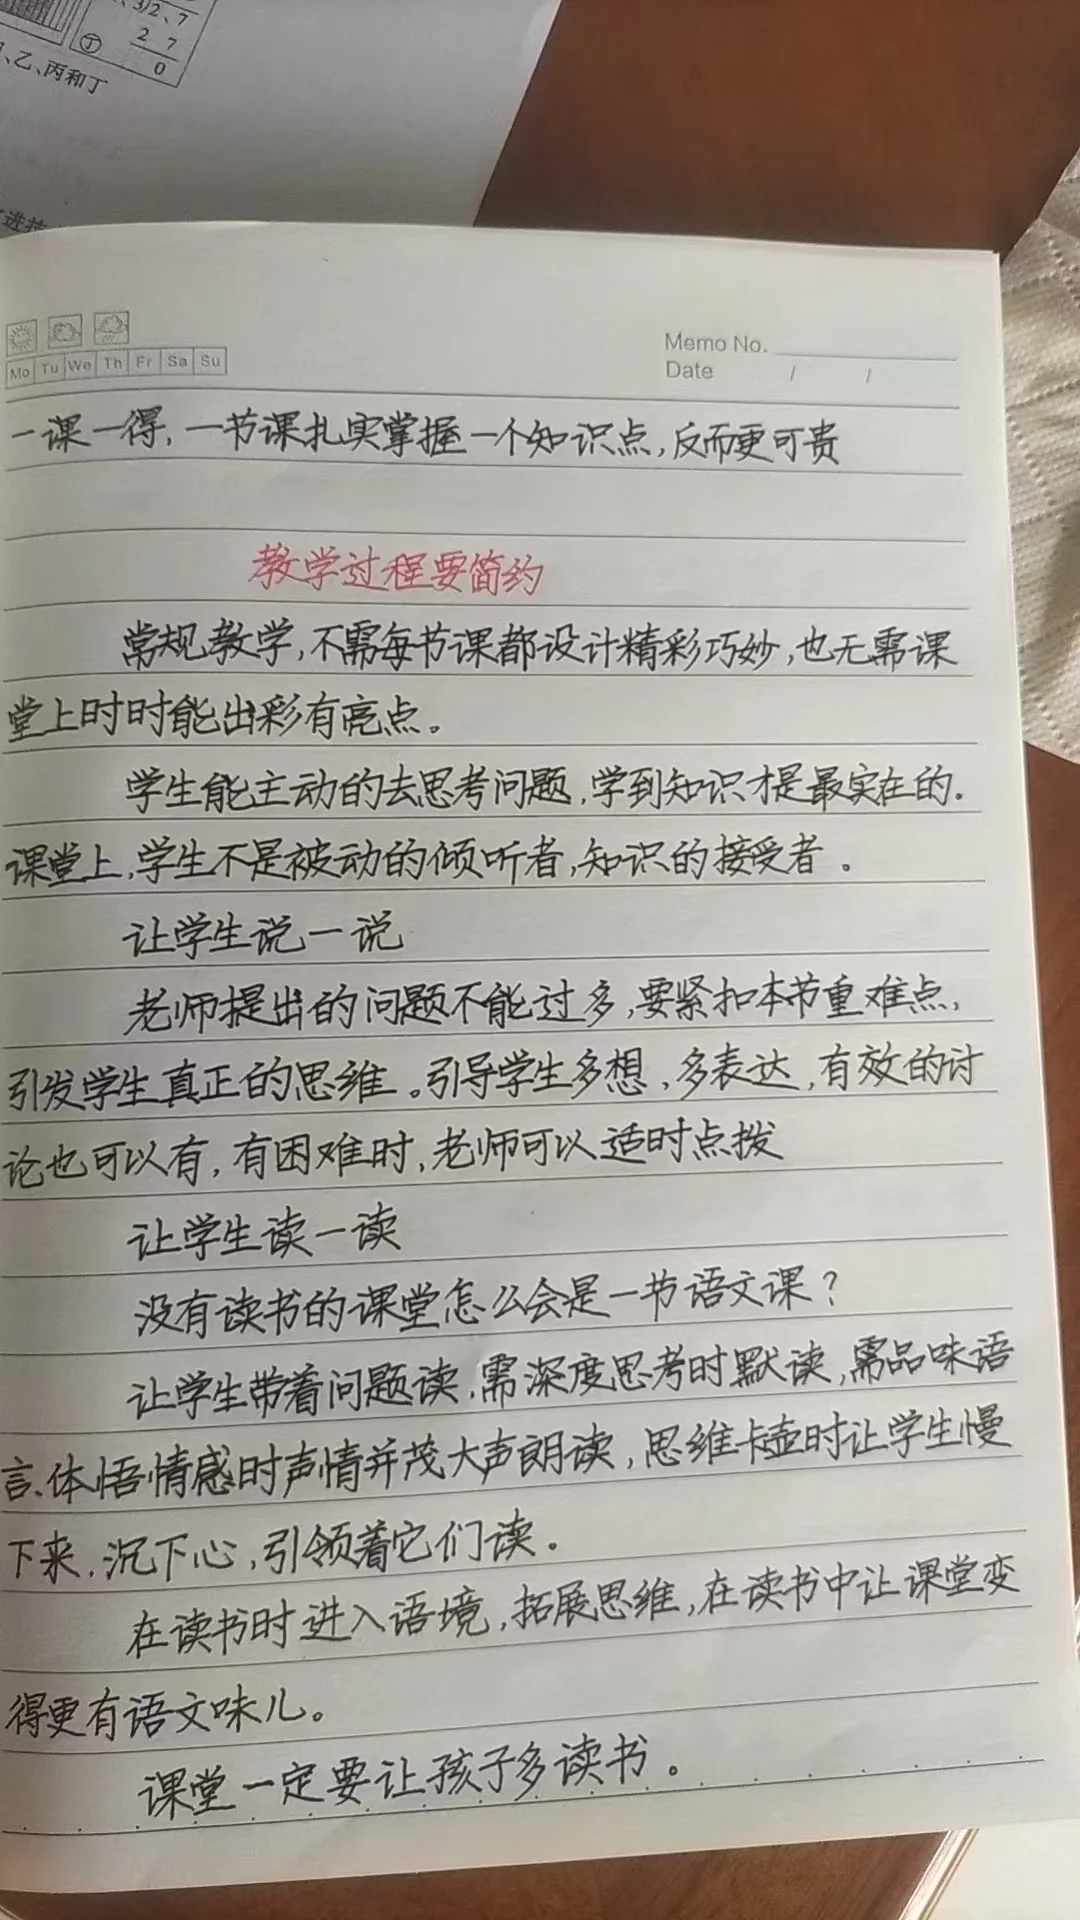 3/2、7
2 7
0
丁
、乙、丙和丁
Memo No.
Mo Tu We Th Fr Sa Su
Date / /
一课一得,一节课扎实掌握一个知识点,反而更可贵
教学过程要简约
常规教学,不需每节课都设计精彩巧妙,也无需课
堂上时时能出彩有亮点。
学生能主动的去思考问题,学到知识才是最实在的.
课堂上,学生不是被动的倾听者,知识的接受者。
让学生说一说
老师提出的问题不能过多,要紧扣本节重难点,
引发学生真正的思维。引导学生多想,多表达,有效的讨
论也可以有,有困难时,老师可以适时点拨
让学生读一读
没有读书的课堂怎么会是一节语文课?
让学生带着问题读,需深度思考时默读,需品味语
言、体悟情感时声情并茂大声朗读,思维卡壶时让学生慢
下来,沉下心,引领着它们读。
在读书时进入语境,拓展思维,在读书中让课堂变
得更有语文味儿。
课堂一定要让孩子多读书。